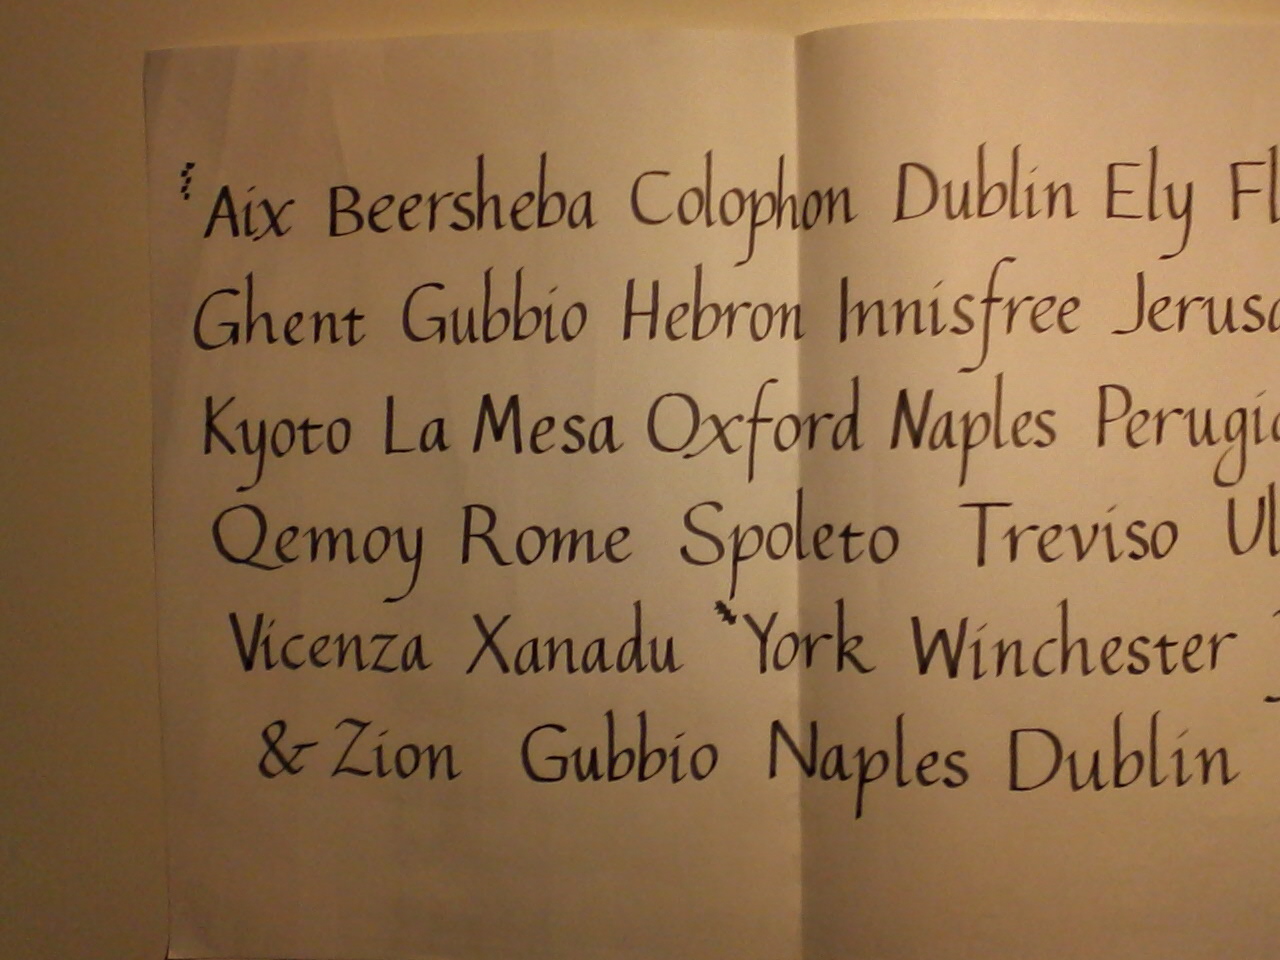 Aix Beersheba Colophon Dublin Ely Fl
Ghent Gubbio Hebron Innisfree Jerusa
Kyoto La Mesa Oxford Naples Perugia
Qemoy Rome Spoleto Treviso
Vicenza Xanadu York Winchester
& Zion Gubbio Naples Dublin